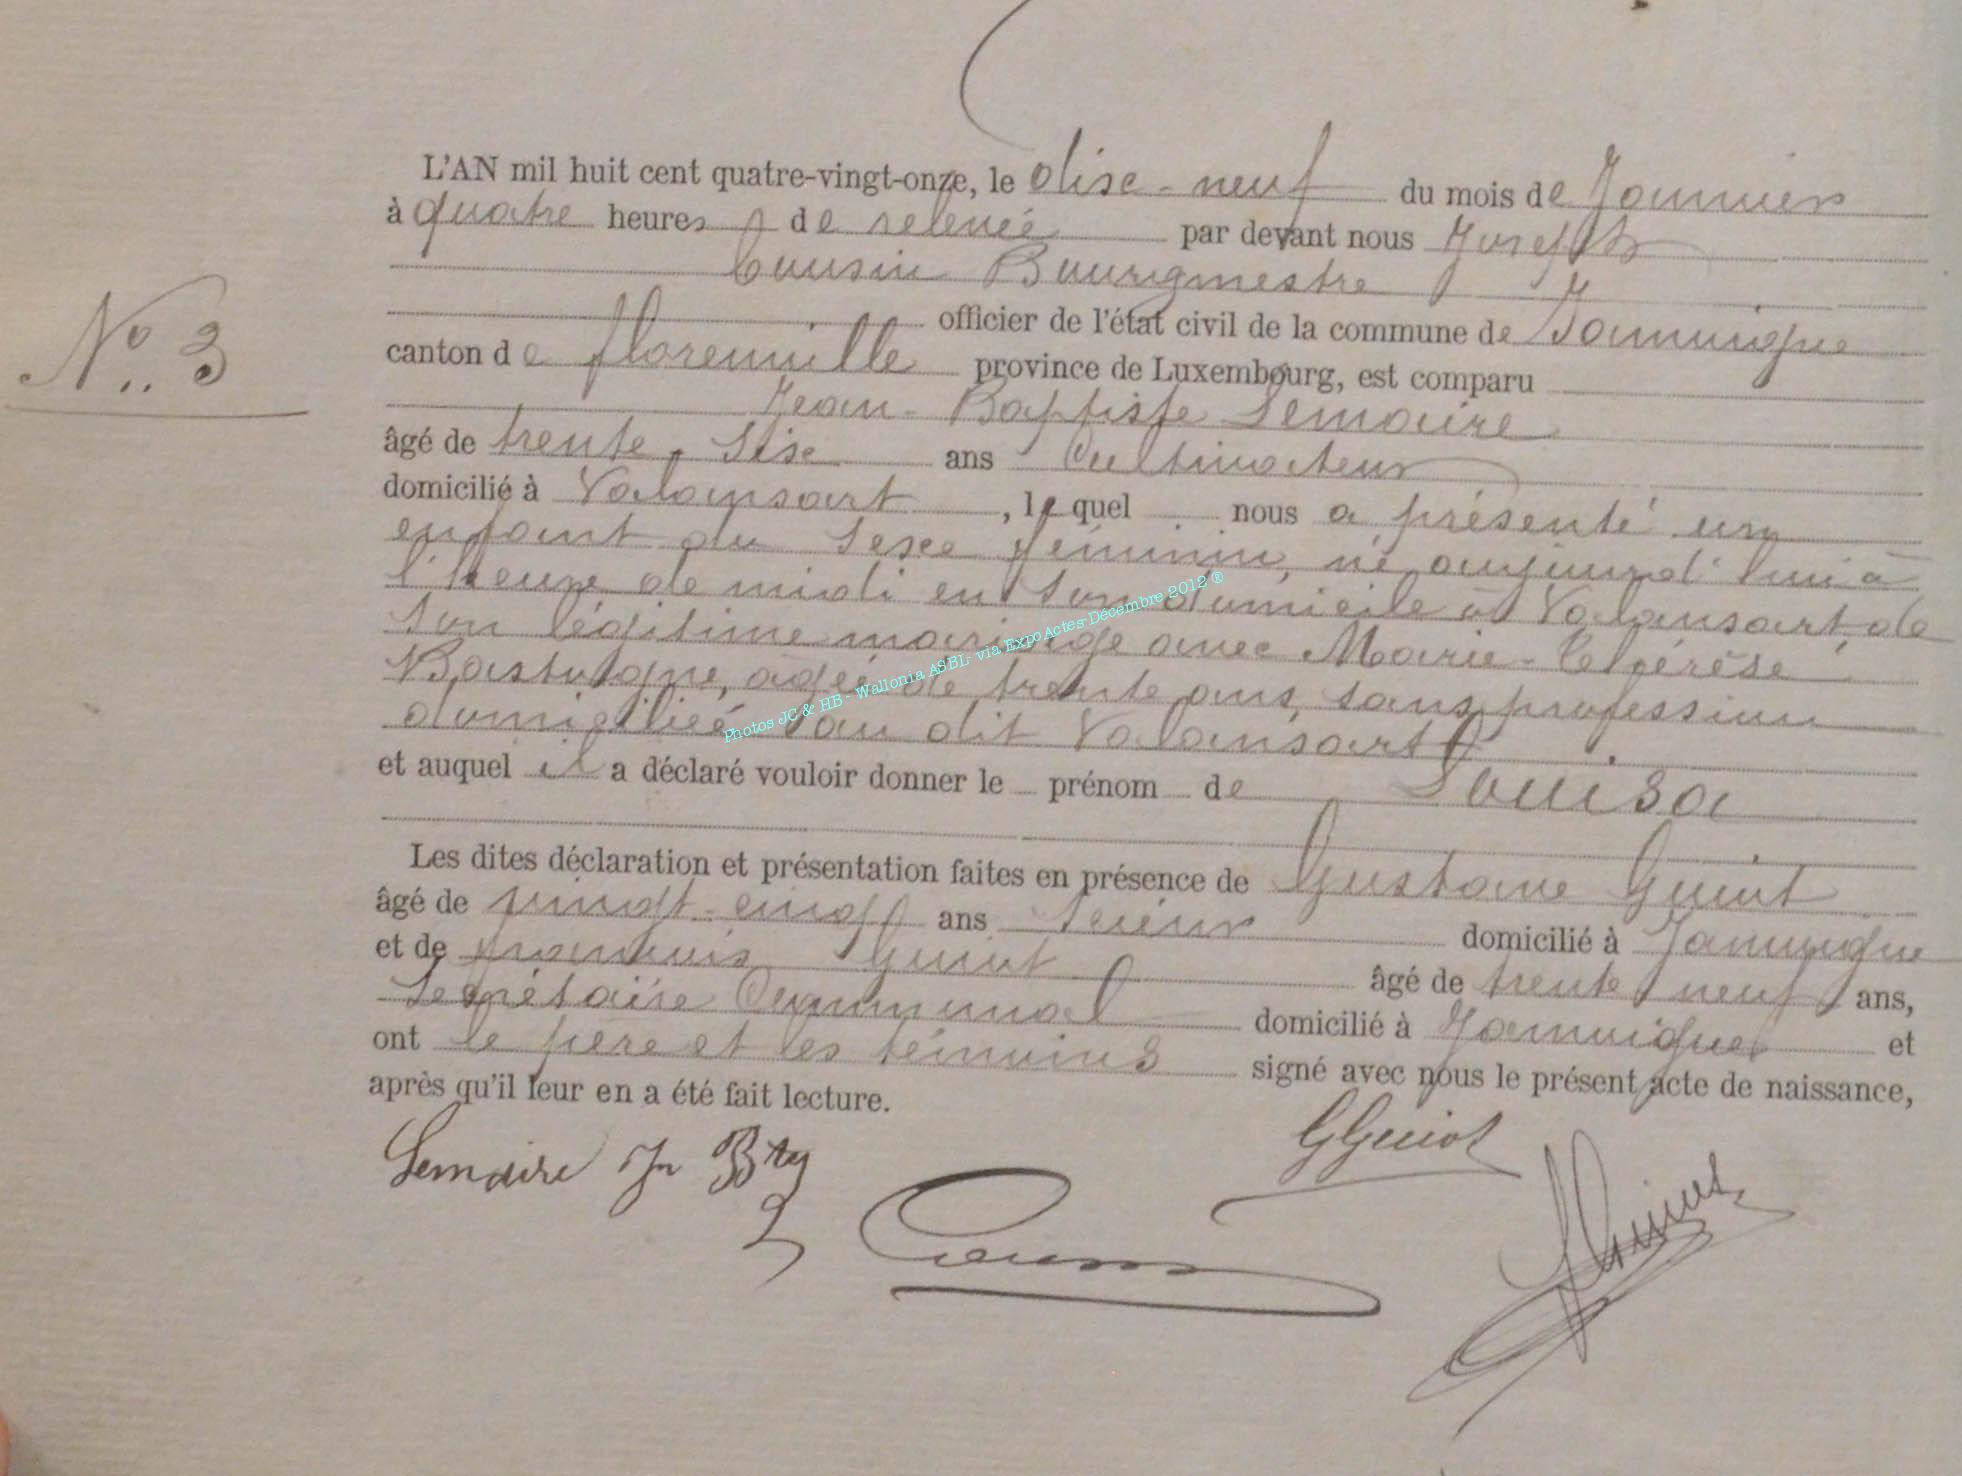 L'AN mil huit cent quatre-vingt-onze, le dise-neuf du mois de Janvier
à quatre heures de relevée par devant nous Joseph
Cousin Bourgmestre
officier de l'état civil de la commune de Jamoigne
canton de florenville province de Luxembourg, est comparu
Jean-Baptiste Lemaire
âgé de trente-sise ans Cultivateur
domicilié à Valansart, lequel nous a présenté un
enfant du sexe féminin, né aujourd'hui à
l'heure de midi en son domicile à Valansart, de
son légitime mariage avec Marie-Thérèse
Bastogne, agée de trente ans, sans profession
domiciliée au dit Valansart
et auquel il a déclaré vouloir donner le prénom de Louisa
Les dites déclaration et présentation faites en présence de Gustave Guiot
âgé de vingt-cinq ans domicilié à Jamoigne
et de françois Guiot âgé de trente neuf ans,
Secrétaire Communal domicilié à Jamoigne et
ont le père et les témoins signé avec nous le présent acte de naissance,
après qu'il leur en a été fait lecture.
N° 3
Lemaire Jn Bte
GGuiot
Cousin
Guiot
Photos JC & HB - Wallonia ASBL- via Expo Actes-Décembre 2012 ®